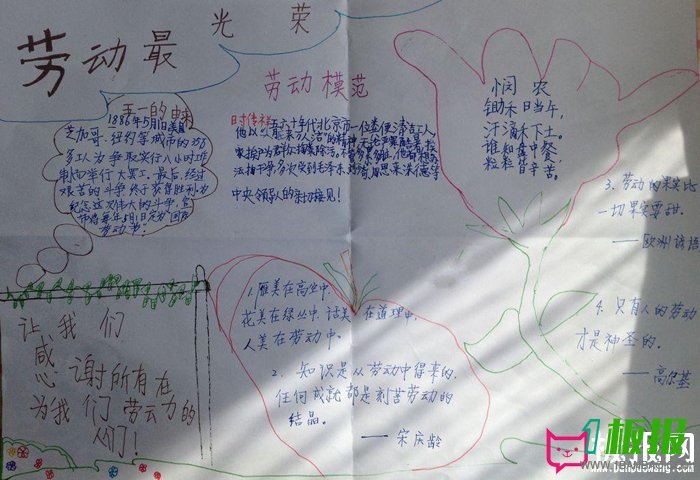 劳动最光荣
五一的由来
1886年5月1日美国
芝加哥、纽约等城市的35
多工人为争取实行八小时工
制而举行大罢工,最后,经过
艰苦的斗争终于获得胜利,为
纪念这次伟大的斗争,宣
布将每年5月1日定为国际
劳动节!
劳动模范
时传祥
五六十年代北京市一位粪便清洁工人,
中央领导人的亲切接见!
悯农
锄禾日当午,
汗滴禾下土。
谁知盘中餐,
粒粒皆辛苦。
让我们
感谢所有在
为我们劳动的
人们!
1. 雁美在高空中,
花美在绿丛中,话美在道理中,
人美在劳动中。
2. 知识是从劳动中得来的,
任何成就都是刻苦劳动的
结晶。
——宋庆龄
3. 劳动的果实比
一切果实要甜。
——欧洲谚语
4. 只有人的劳动
才是神圣的。
——高尔基
1板报